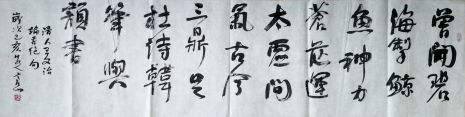 曾聞碧
海掣鯨
魚神力
蒼茫運
太虛間
氣古今
三鼎足
杜詩韓
筆與
顏書
清人王文治
論書絕句
歲次己亥